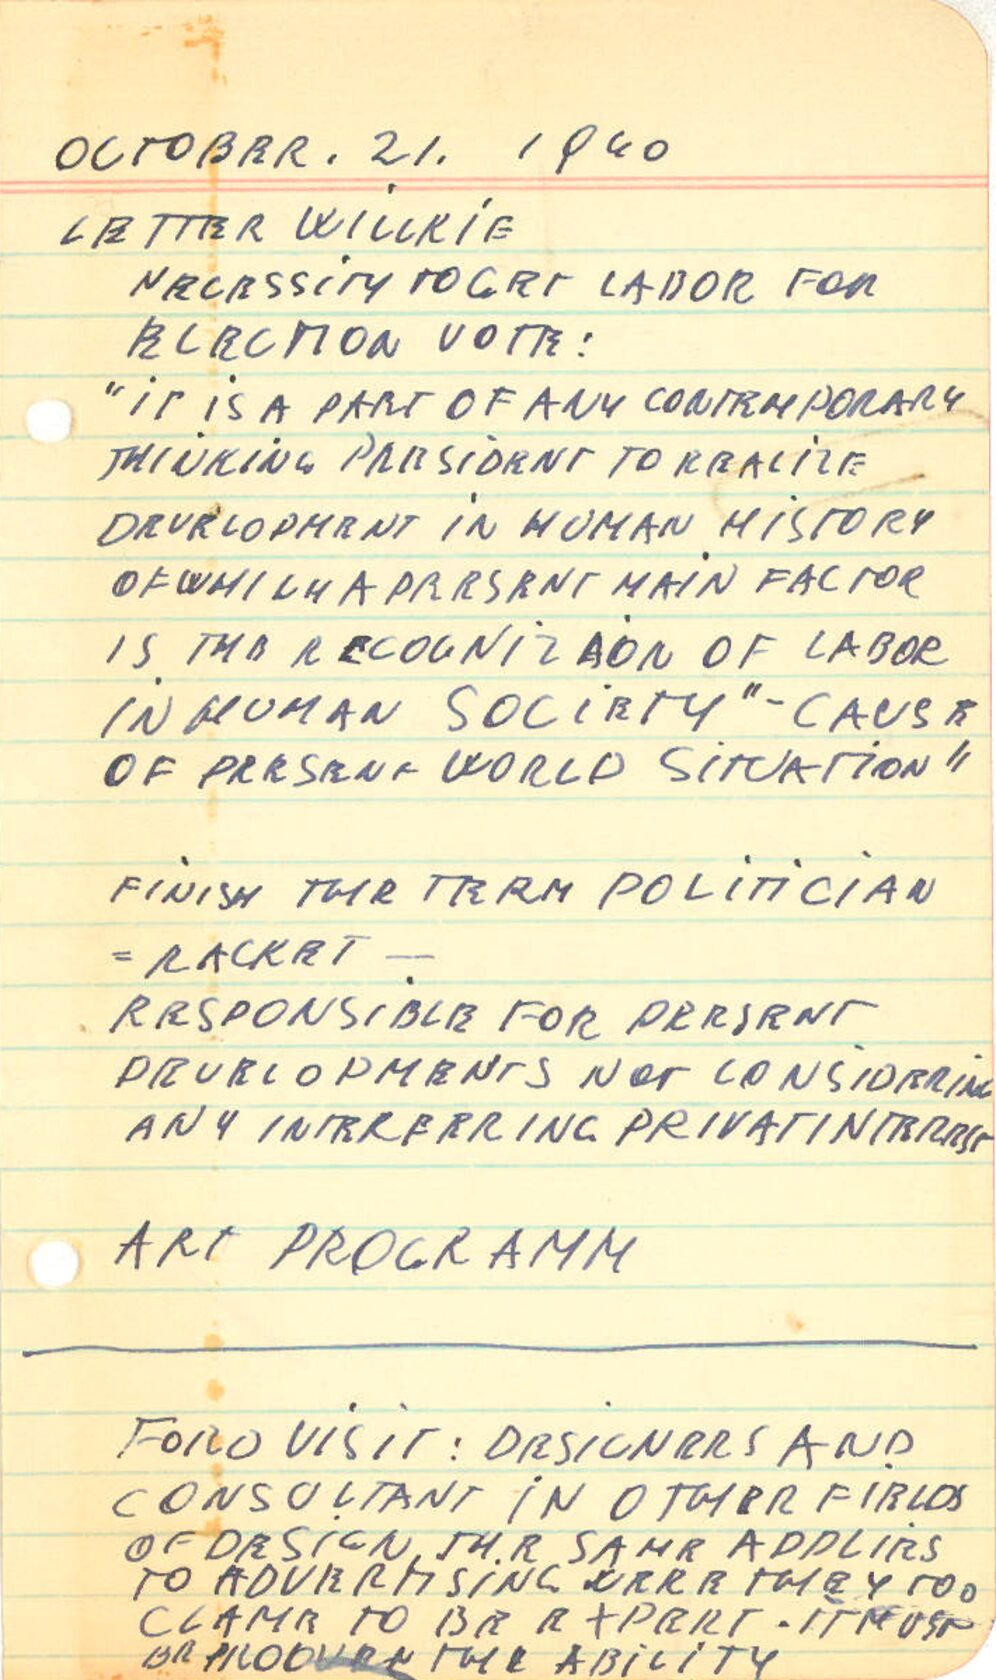 OCTOBER. 21. 1940
LETTER WILLKIE
NECESSITY TO GET LABOR FOR
ELECTION VOTE:
"IT IS A PART OF ANY CONTEMPORARY
THINKING PRESIDENT TO REALIZE
DEVELOPMENT IN HUMAN HISTORY
OF WHICH A PRESENT MAIN FACTOR
IS THE RECOGNIZAION OF LABOR
IN HUMAN SOCIETY"-CAUSE
OF PRESENT WORLD SITUATION"
FINISH THE TERM POLITICIAN
= RACKET —
RESPONSIBLE FOR PRESENT
DEVELOPMENTS NOT CONSIDERING
ANY INTERFERRING PRIVAT INTEREST
ART PROGRAMM
FORD VISIT: DESIGNERS AND
CONSULTANT IN OTHER FIELDS
OF DESIGN, THE SAME APPLIES
TO ADVERTISING THEY TOO
CLAME TO BE EXPERT. IT MUST
BE THE ABILITY